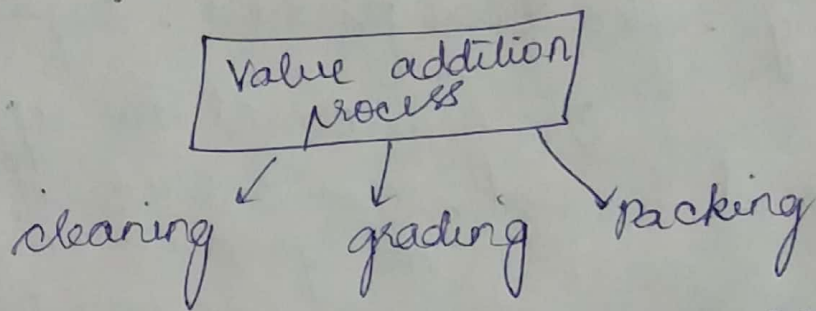 Value addition
process
cleaning grading Packing